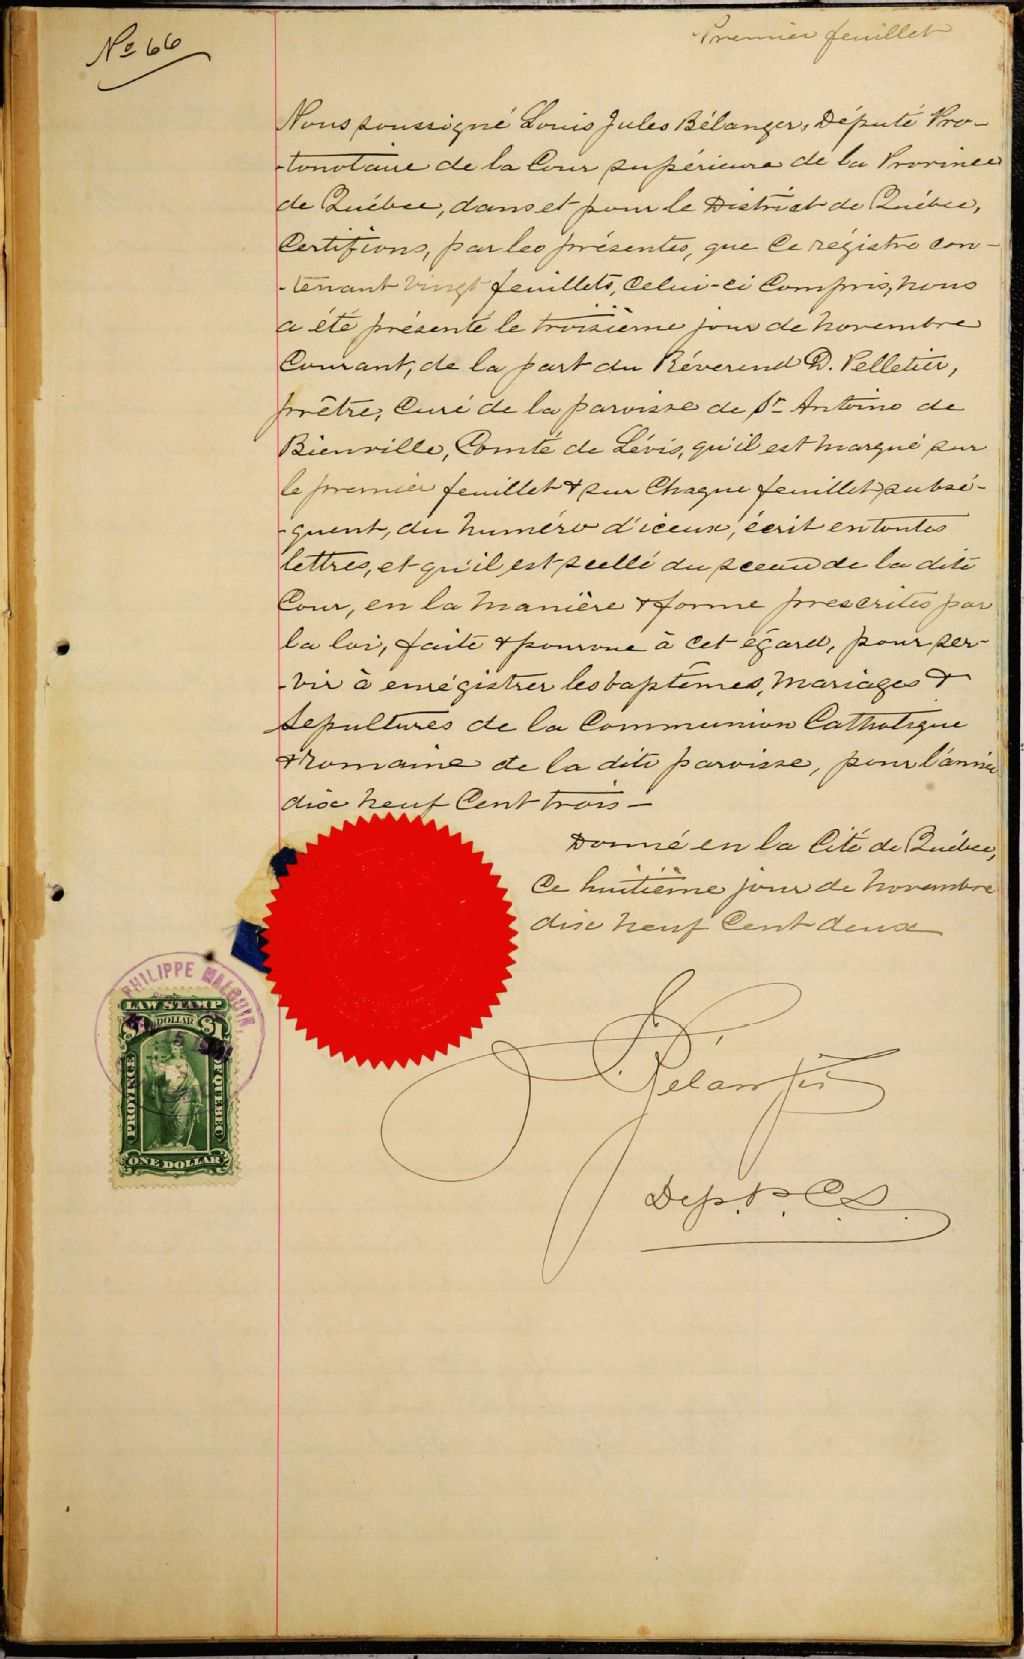 No 66
Premier feuillet
Nous soussigné Louis Jules Bélanger, Député Pro-
-tonotaire de la Cour supérieure de la Province
de Québec, dans et pour le District de Québec,
Certifions, par les présentes, que ce régistre con-
-tenant vingt feuillets, celui-ci compris, nous
a été présenté le troisième jour de novembre
Courant, de la part du Révérend D. Pelletier,
prêtre, Curé de la paroisse de St Antoine de
Bienville, Comté de Lévis, qu'il est marqué sur
le premier feuillet & sur chaque feuillet subsé-
-quent, du numéro d'iceux, écrit en toutes
lettres, et qu'il est scellé du sceau de la dite
Cour, en la manière & forme prescrites par
la loi, faite & pourvue à cet égard, pour ser-
-vir à enrégistrer les baptêmes, mariages &
Sépultures de la Communion Catholique
& Romaine de la dite paroisse, pour l'année
dix neuf Cent trois —
Donné en la Cité de Québec,
ce huitième jour de novembre
dix neuf Cent deux
PHILIPPE MALOUIN,
LAW STAMP
$1 DOLLAR $1
PROVINCE
OF QUEBEC
ONE DOLLAR
Bélanger
Dep. P. C. S.